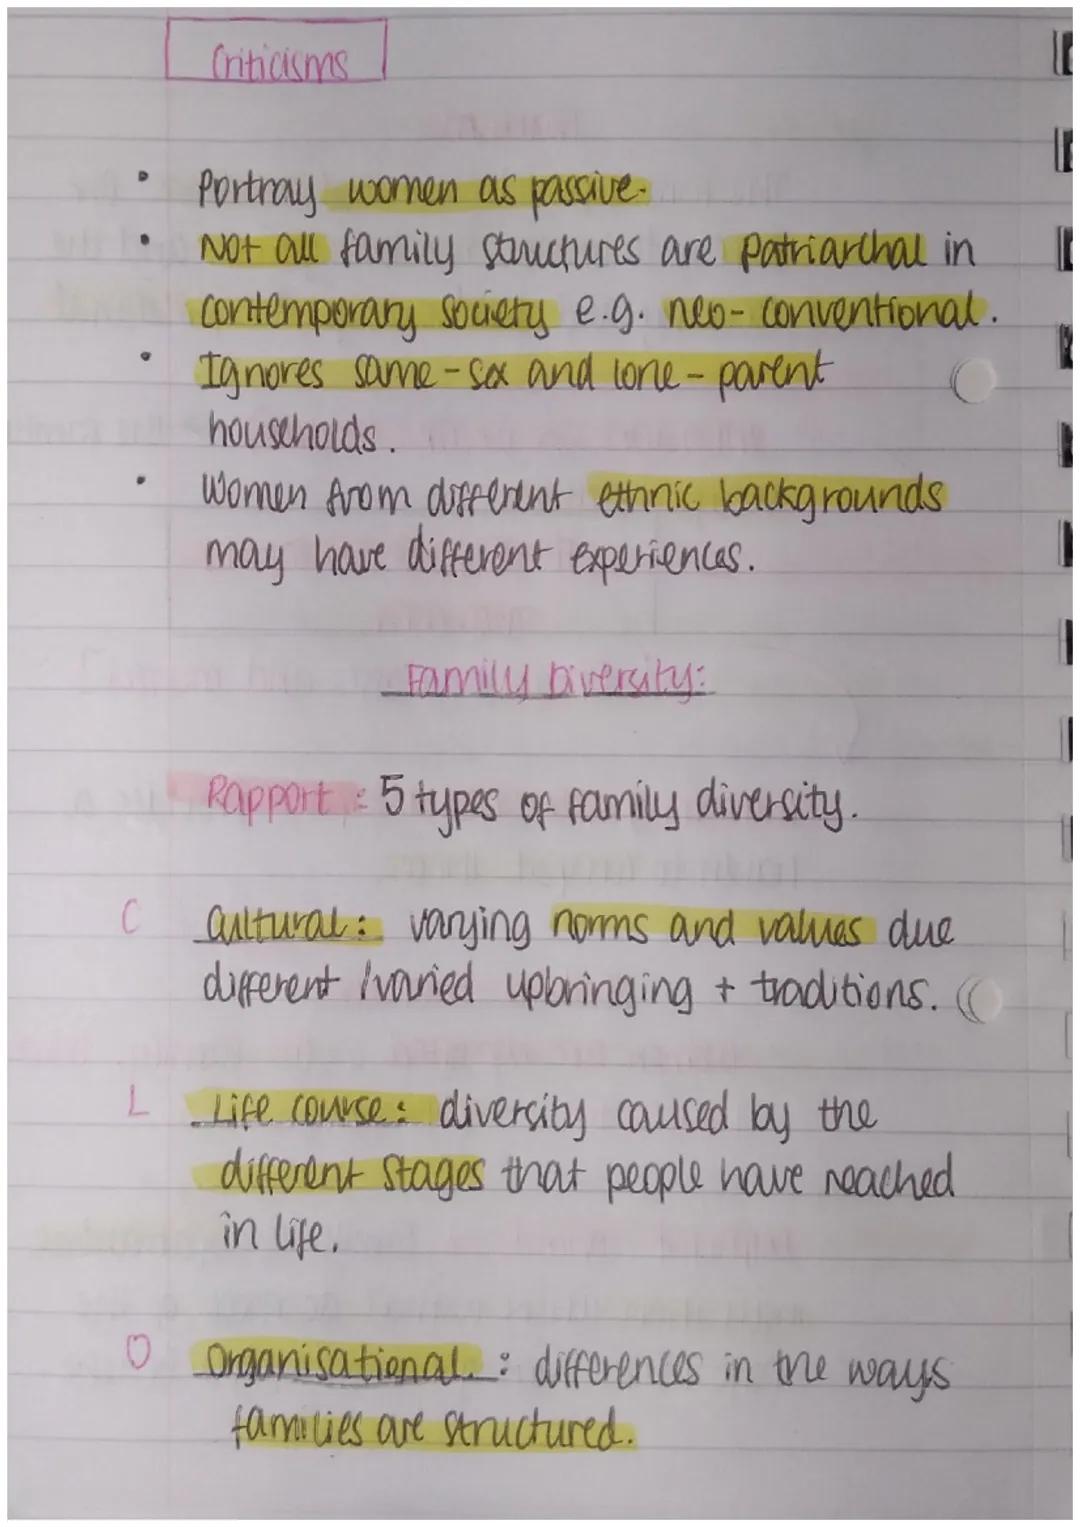 Criticisms
• Portray women as passive.
• Not all family structures are patriarchal in
contemporary society e.g. neo-conventional.
• Ignores same-sex and lone-parent
households.
• Women from different ethnic backgrounds
may have different experiences.
Family Diversity:
Rapport: 5 types of family diversity.
C Cultural: varying norms and values due
different /varied upbringing + traditions.
L Life course: diversity caused by the
different stages that people have reached
in life.
O Organisational.: differences in the ways
families are structured.